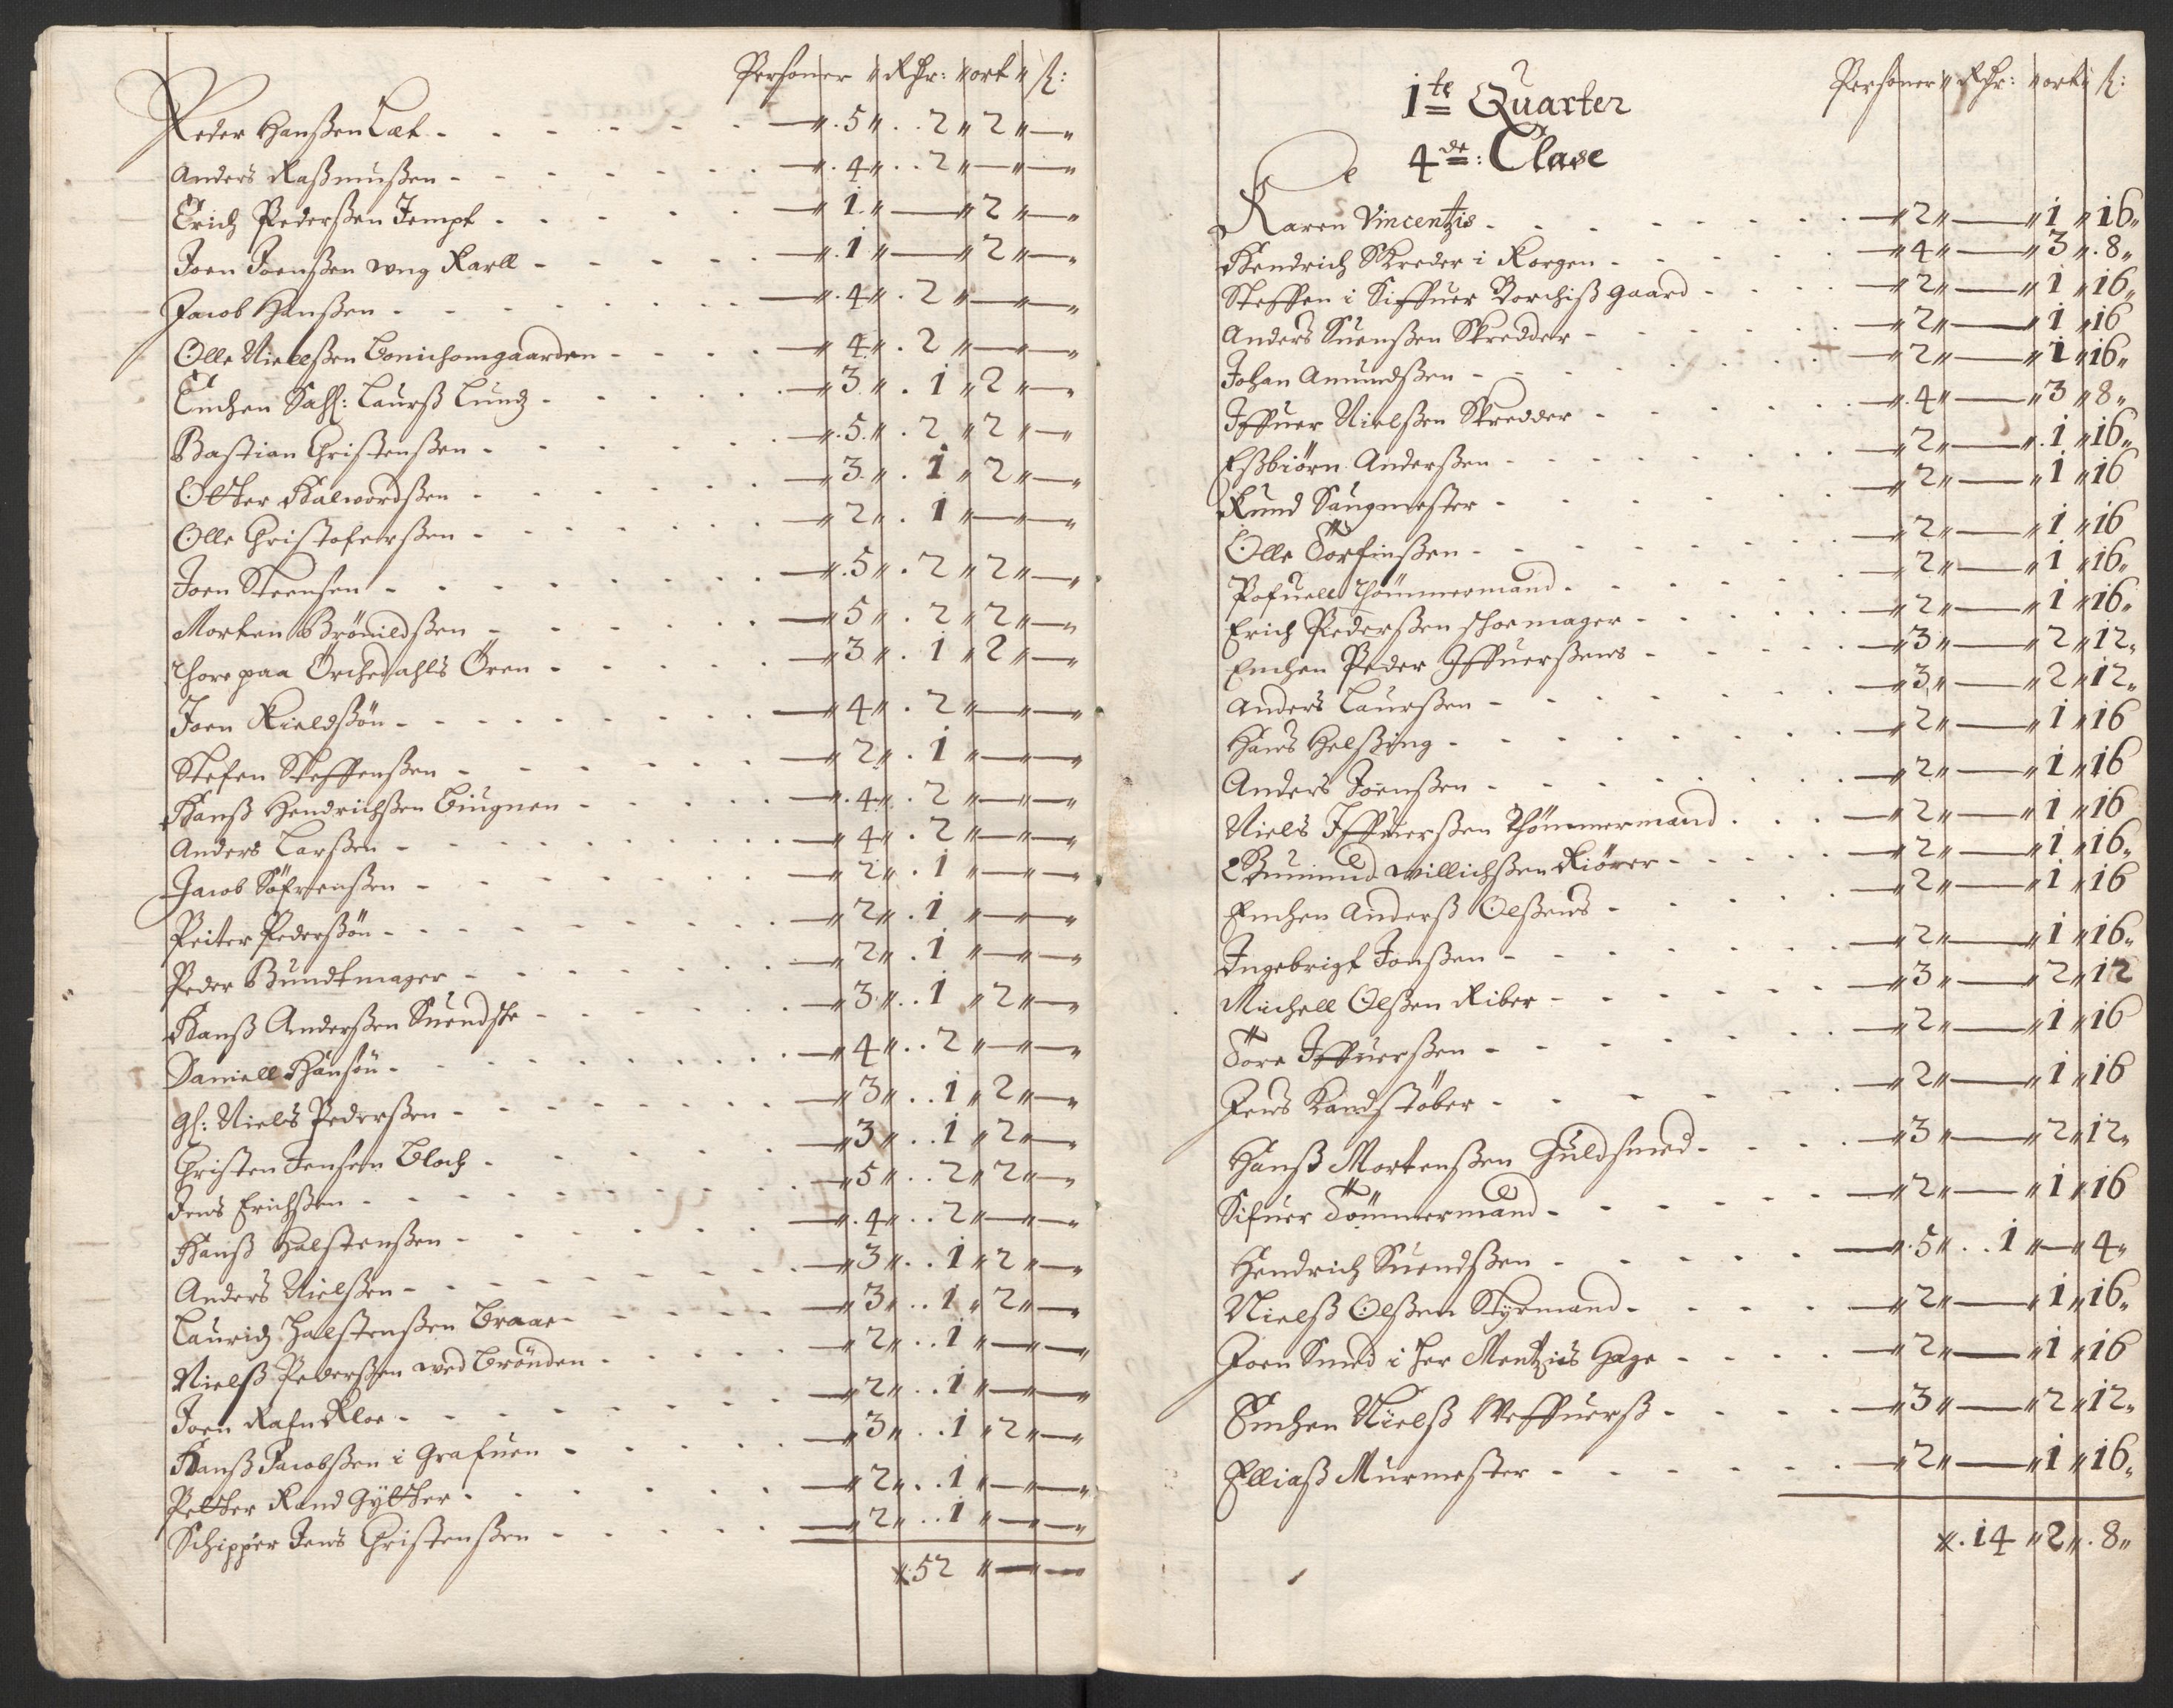 Personer " Rdr: " ort " ß:
Peder Hanßen Lax - 5 " 2 " 2 " —
Anders Raßmußen - 4 " 2 " — " —
Erich Pederßen Jempt - 1 " — " 2 " —
Joen Joenßen ung Karll - 1 " — " 2 " —
Jacob Hanßen - 4 " 2 " — " —
Olle Nielßen Bonichomgaarden - 4 " 2 " — " —
Enchen Sahl: Laurß Lund - 3 " 1 " 2 " —
Bastian Christenßen - 5 " 2 " 2 " —
Otther Halwordßen - 3 " 1 " 2 " —
Olle Christoferßen - 2 " 1 " — " —
Joen Steensen - 5 " 2 " 2 " —
Morten Brönildßen - 5 " 2 " 2 " —
Thore paa Örchedahls Ören - 3 " 1 " 2 " —
Joen Kieldßön - 4 " 2 " — " —
Stefen Steffenßen - 2 " 1 " — " —
Hanß Hendrichßen Biugnen - 4 " 2 " — " —
Anders Larßen - 4 " 2 " — " —
Jacob Söfrenßen - 2 " 1 " — " —
Peiter Pederßön - 2 " 1 " — " —
Peder Bundtmager - 2 " 1 " — " —
Hanß Anderßen Suendske - 3 " 1 " 2 " —
Daniell Hansön - 4 " 2 " — " —
Gl: Niels Pederßen - 3 " 1 " 2 " —
Christen Jensen Bloch - 3 " 1 " 2 " —
Jens Erichßen - 5 " 2 " 2 " —
Hanß Halstenßen - 4 " 2 " — " —
Anders Nielßen - 3 " 1 " 2 " —
Lauridz Halstenßen Braae - 3 " 1 " 2 " —
Nielß Pederßen ved Brönden - 2 " 1 " — " —
Joen Rafn Kloe - 2 " 1 " — " —
Hanß Jacobßen i Grafuen - 3 " 1 " 2 " —
Petther Kand Gytther - 2 " 1 " — " —
Schipper Jens Christenßen - 2 " 1 " — " —
52 " — " —
Personer " Rdr: " ort " ß:
1te Quarter
4de: Clase
Karen Vincentzis - 2 " — " 1 " 16
Hendrich Skreder i Korgen - 4 " — " 3 " 8
Steffen i Siffuer Borchiß gaard - 2 " — " 1 " 16
Anders Suenßen Skredder - 2 " — " 1 " 16
Johan Amundßen - 2 " — " 1 " 16
Iffuer Nielßen Skredder - 4 " — " 3 " 8
Eßbiörn Anderßen - 2 " — " 1 " 16
Knud Saugmester - 2 " — " 1 " 16
Olle Torfinßen - 2 " — " 1 " 16
Pofuell Thömmermand - 2 " — " 1 " 16
Erich Pederßen skoemager - 2 " — " 1 " 16
Enchen Peder Iffuerßens - 3 " — " 2 " 12
Anders Laurßen - 3 " — " 2 " 12
Hans Helßing - 2 " — " 1 " 16
Anders Joenßen - 2 " — " 1 " 16
Niels Iffuerßen Thömmermand - 2 " — " 1 " 16
Gunmund willichßen Kiörer - 2 " — " 1 " 16
Enchen Anderß Olßens - 2 " — " 1 " 16
Ingebrigt Jonßen - 2 " — " 1 " 16
Michell Olßen Riber - 3 " — " 2 " 12
Tore Iffuerßen - 2 " — " 1 " 16
Jens Kandstöber - 2 " — " 1 " 16
Hanß Mortenßen Guldsmed - 3 " — " 2 " 12
Sifuer Tömmermand - 2 " — " 1 " 16
Hendrich Suendßen - 5 " 1 " — " 4
Nielß Olßen Styrmand - 2 " — " 1 " 16
Joen Smed i her Mentzies Hage - 2 " — " 1 " 16
Enchen Nielß Weffuerß - 3 " — " 2 " 12
Elliaß Murmester - 2 " — " 1 " 16
14 " 2 " 8